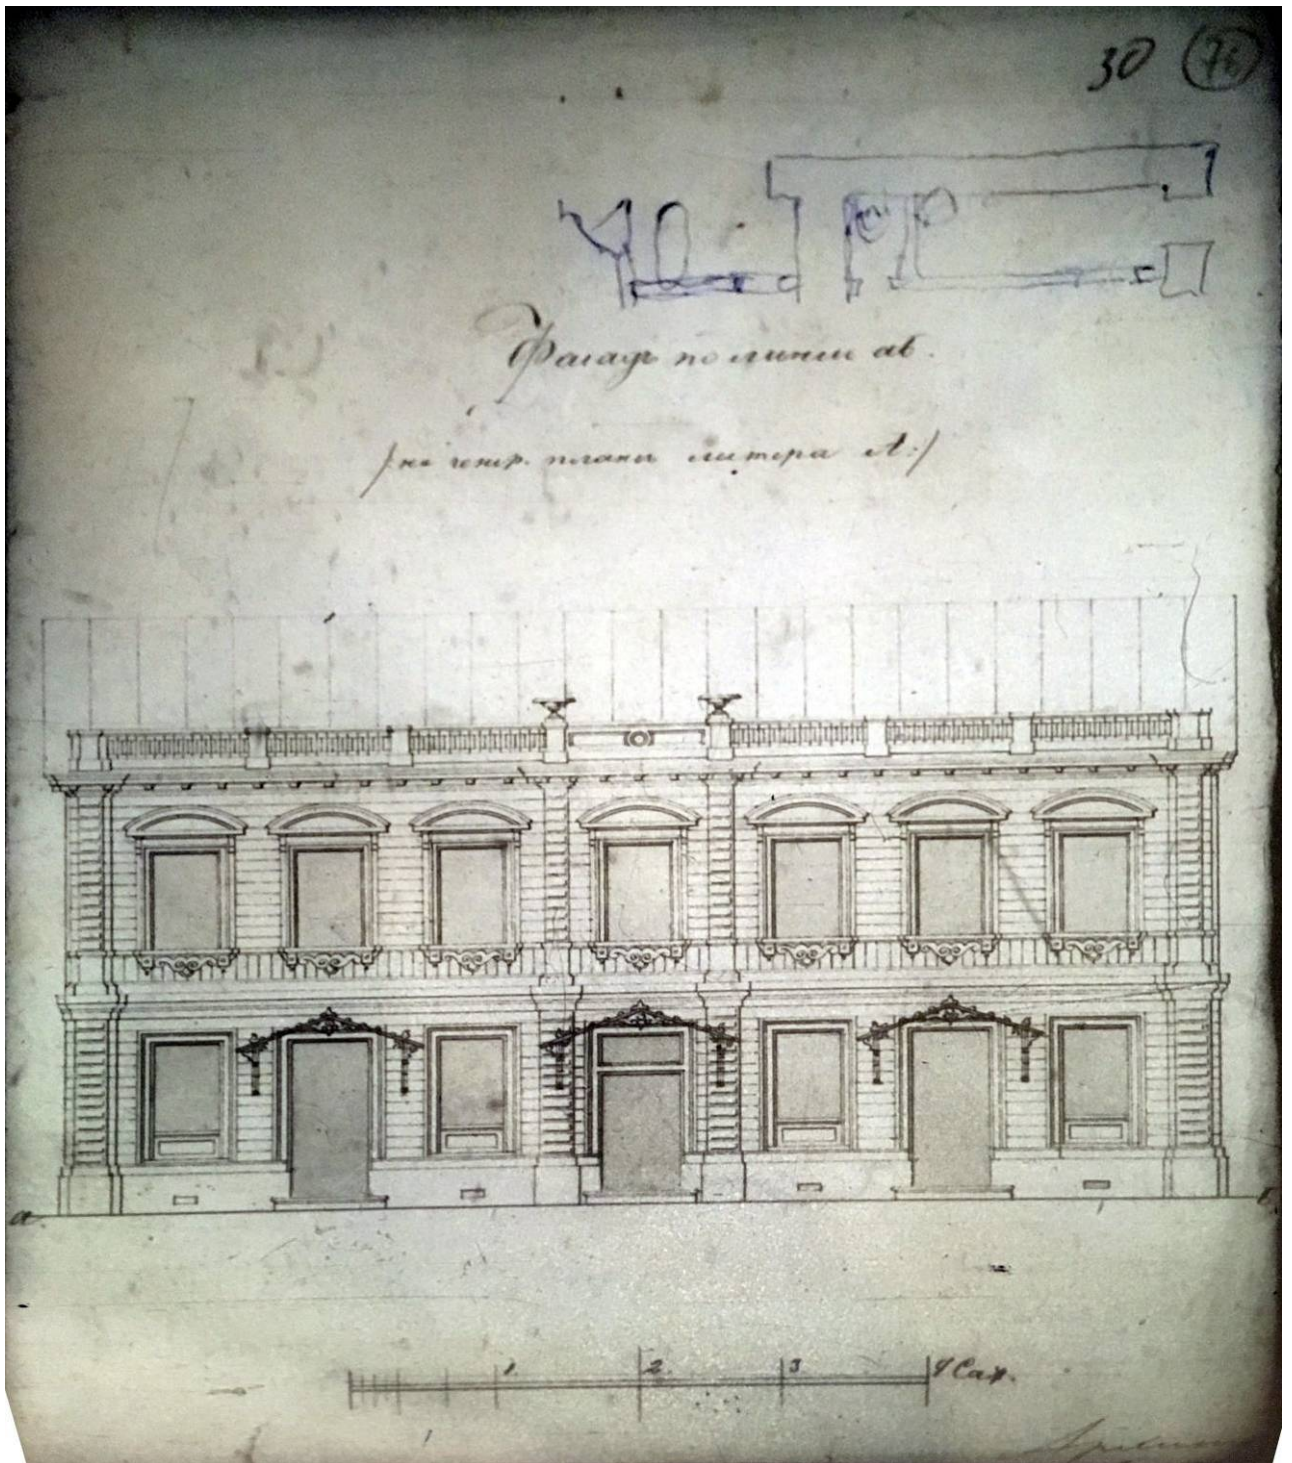 30 76
Фасадъ по линіи аб.
/на генер. планѣ литера А:/
а б
1 2 3 4 Саж.